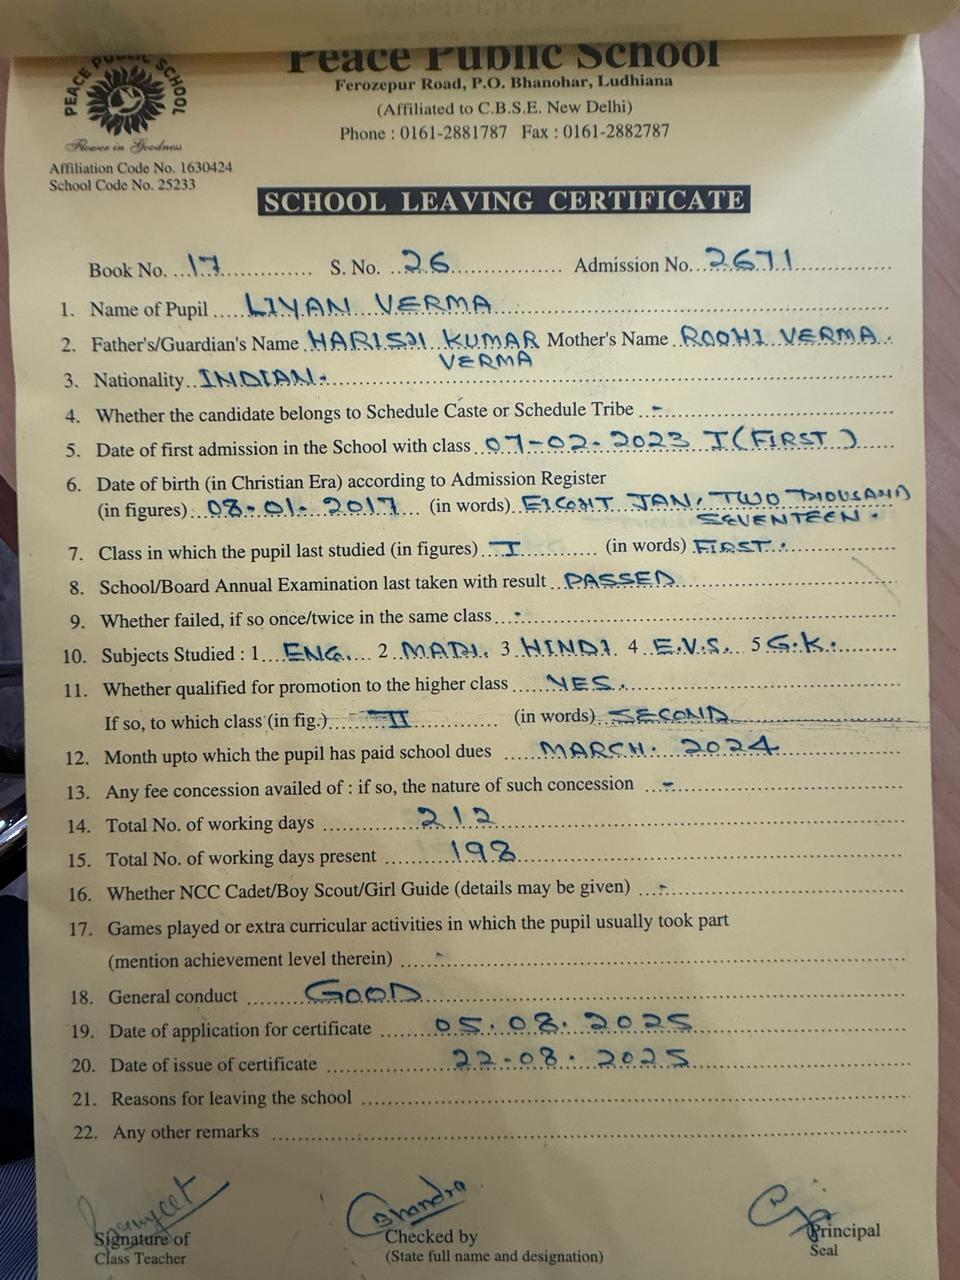 Peace Public School
PEACE PUBLIC SCHOOL
Flower in Goodness
Ferozepur Road, P.O. Bhanohar, Ludhiana
(Affiliated to C.B.S.E. New Delhi)
Phone : 0161-2881787 Fax : 0161-2882787
Affiliation Code No. 1630424
School Code No. 25233
SCHOOL LEAVING CERTIFICATE
Book No. 17 S. No. 26 Admission No. 2671
1. Name of Pupil LIYAN VERMA
2. Father's/Guardian's Name HARISH KUMAR Mother's Name ROOHI VERMA.
VERMA
3. Nationality INDIAN.
4. Whether the candidate belongs to Schedule Caste or Schedule Tribe -
5. Date of first admission in the School with class 07-02-2023 I (FIRST)
6. Date of birth (in Christian Era) according to Admission Register
(in figures) 08-01-2017 (in words) EIGHT JAN, TWO THOUSAND
SEVENTEEN.
7. Class in which the pupil last studied (in figures) I (in words) FIRST.
8. School/Board Annual Examination last taken with result PASSED
9. Whether failed, if so once/twice in the same class -
10. Subjects Studied : 1 ENG. 2 MATH. 3 HINDI 4 E.V.S. 5 G.K.
11. Whether qualified for promotion to the higher class YES.
If so, to which class (in fig.) II (in words) SECOND
12. Month upto which the pupil has paid school dues MARCH. 2024
13. Any fee concession availed of : if so, the nature of such concession -
14. Total No. of working days 212
15. Total No. of working days present 198
16. Whether NCC Cadet/Boy Scout/Girl Guide (details may be given) -
17. Games played or extra curricular activities in which the pupil usually took part
(mention achievement level therein) -
18. General conduct GOOD
19. Date of application for certificate 05.08.2025
20. Date of issue of certificate 22-08.2025
21. Reasons for leaving the school
22. Any other remarks
Chandra
Signature of Checked by Principal
Class Teacher (State full name and designation) Seal